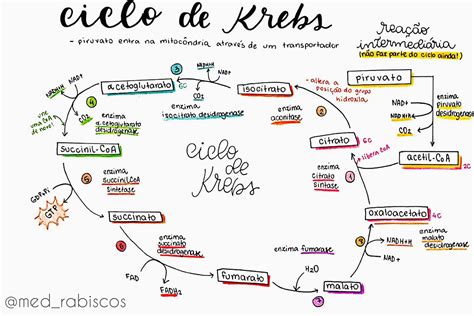 ciclo de Krebs
- piruvato entra na mitocôndria através de um transportador
reação
intermediária
(não faz parte do ciclo ainda!)
piruvato
NAD+
NADH+H
CO2
enzima
piruvato
desidrogenase
acetil-CoA
2C
+ libera CoA
1
enzima
citrato
sintase
citrato
6C
- altera a
posição do grupo
hidroxila
2
enzima
aconitase
isocitrato
3
NAD+
NADH+H
CO2
enzima
isocitrato desidrogenase
acetoglutarato
5C
NAD+
NADH+H
4
CO2
enzima
α cetoglutarato
desidrogenase
une uma CoA
de novo!
succinil-CoA
4C
5
enzima
succinil CoA
sintetase
GDP+Pi
GTP
succinato
6
enzima
succinato
desidrogenase
FAD
FADH2
fumarato
enzima fumarase
H2O
7
malato
8
enzima
malato
desidrogenase
NADH+H
NAD+
oxaloacetato
4C
ciclo
de
Krebs
@med_rabiscos